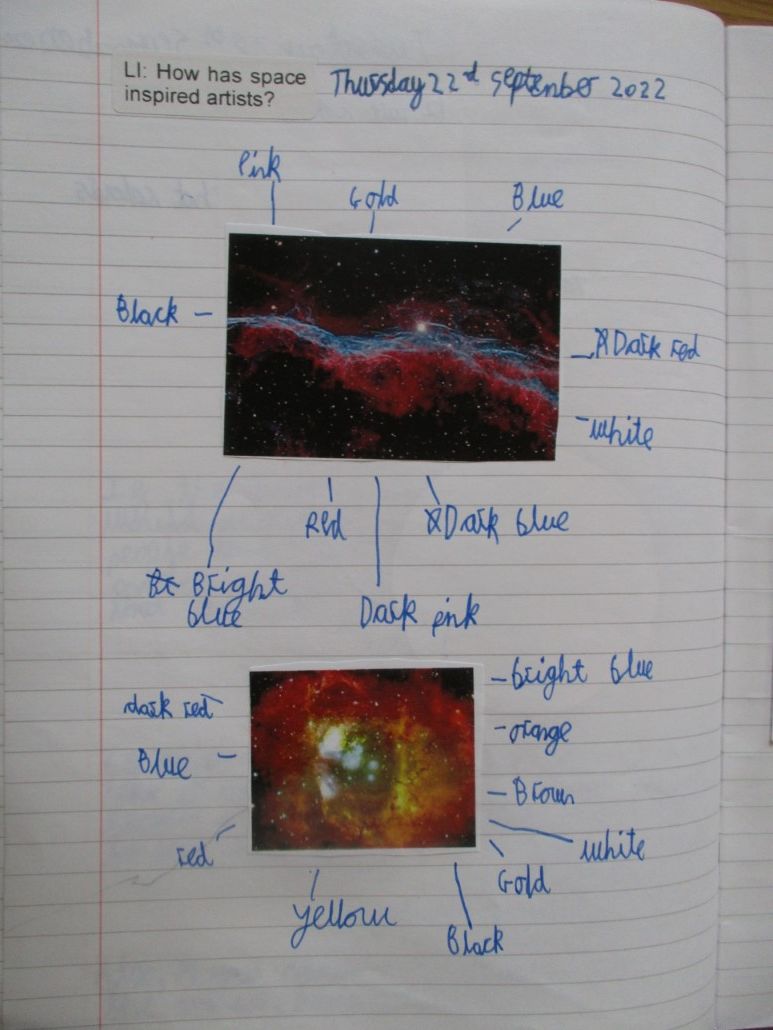 LI: How has space
inspired artists?
Thursday 22nd September 2022
Pink
Gold
Blue
Black
Dark red
white
Red
Dark blue
Bright
blue
Dark pink
bright blue
dark red
orange
Blue
Brown
red
white
Gold
yellow
Black